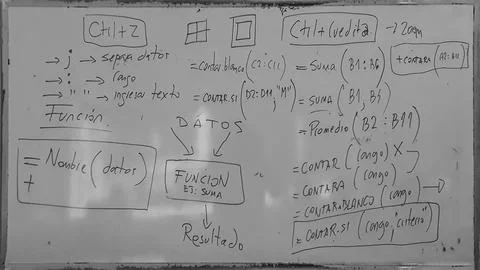 Ctrl+Z
→ ; → separa datos
→ : → rango
→ " " → ingresar texto
Función
= Nombre (datos)
+
=contar.blanco(C2:C11)
=CONTAR.SI(D2:D11,"M")
DATOS
FUNCION
EJ: SUMA
Resultado
→ Zoom
+CONTARA(A2:A11)
=SUMA(B1:B6)
=SUMA(B1, B5)
=Promedio(B2:B11)
=CONTAR(rango) X
=CONTARA(rango)
=CONTAR.BLANCO(rango) →
=CONTAR.SI(rango,"criterio")